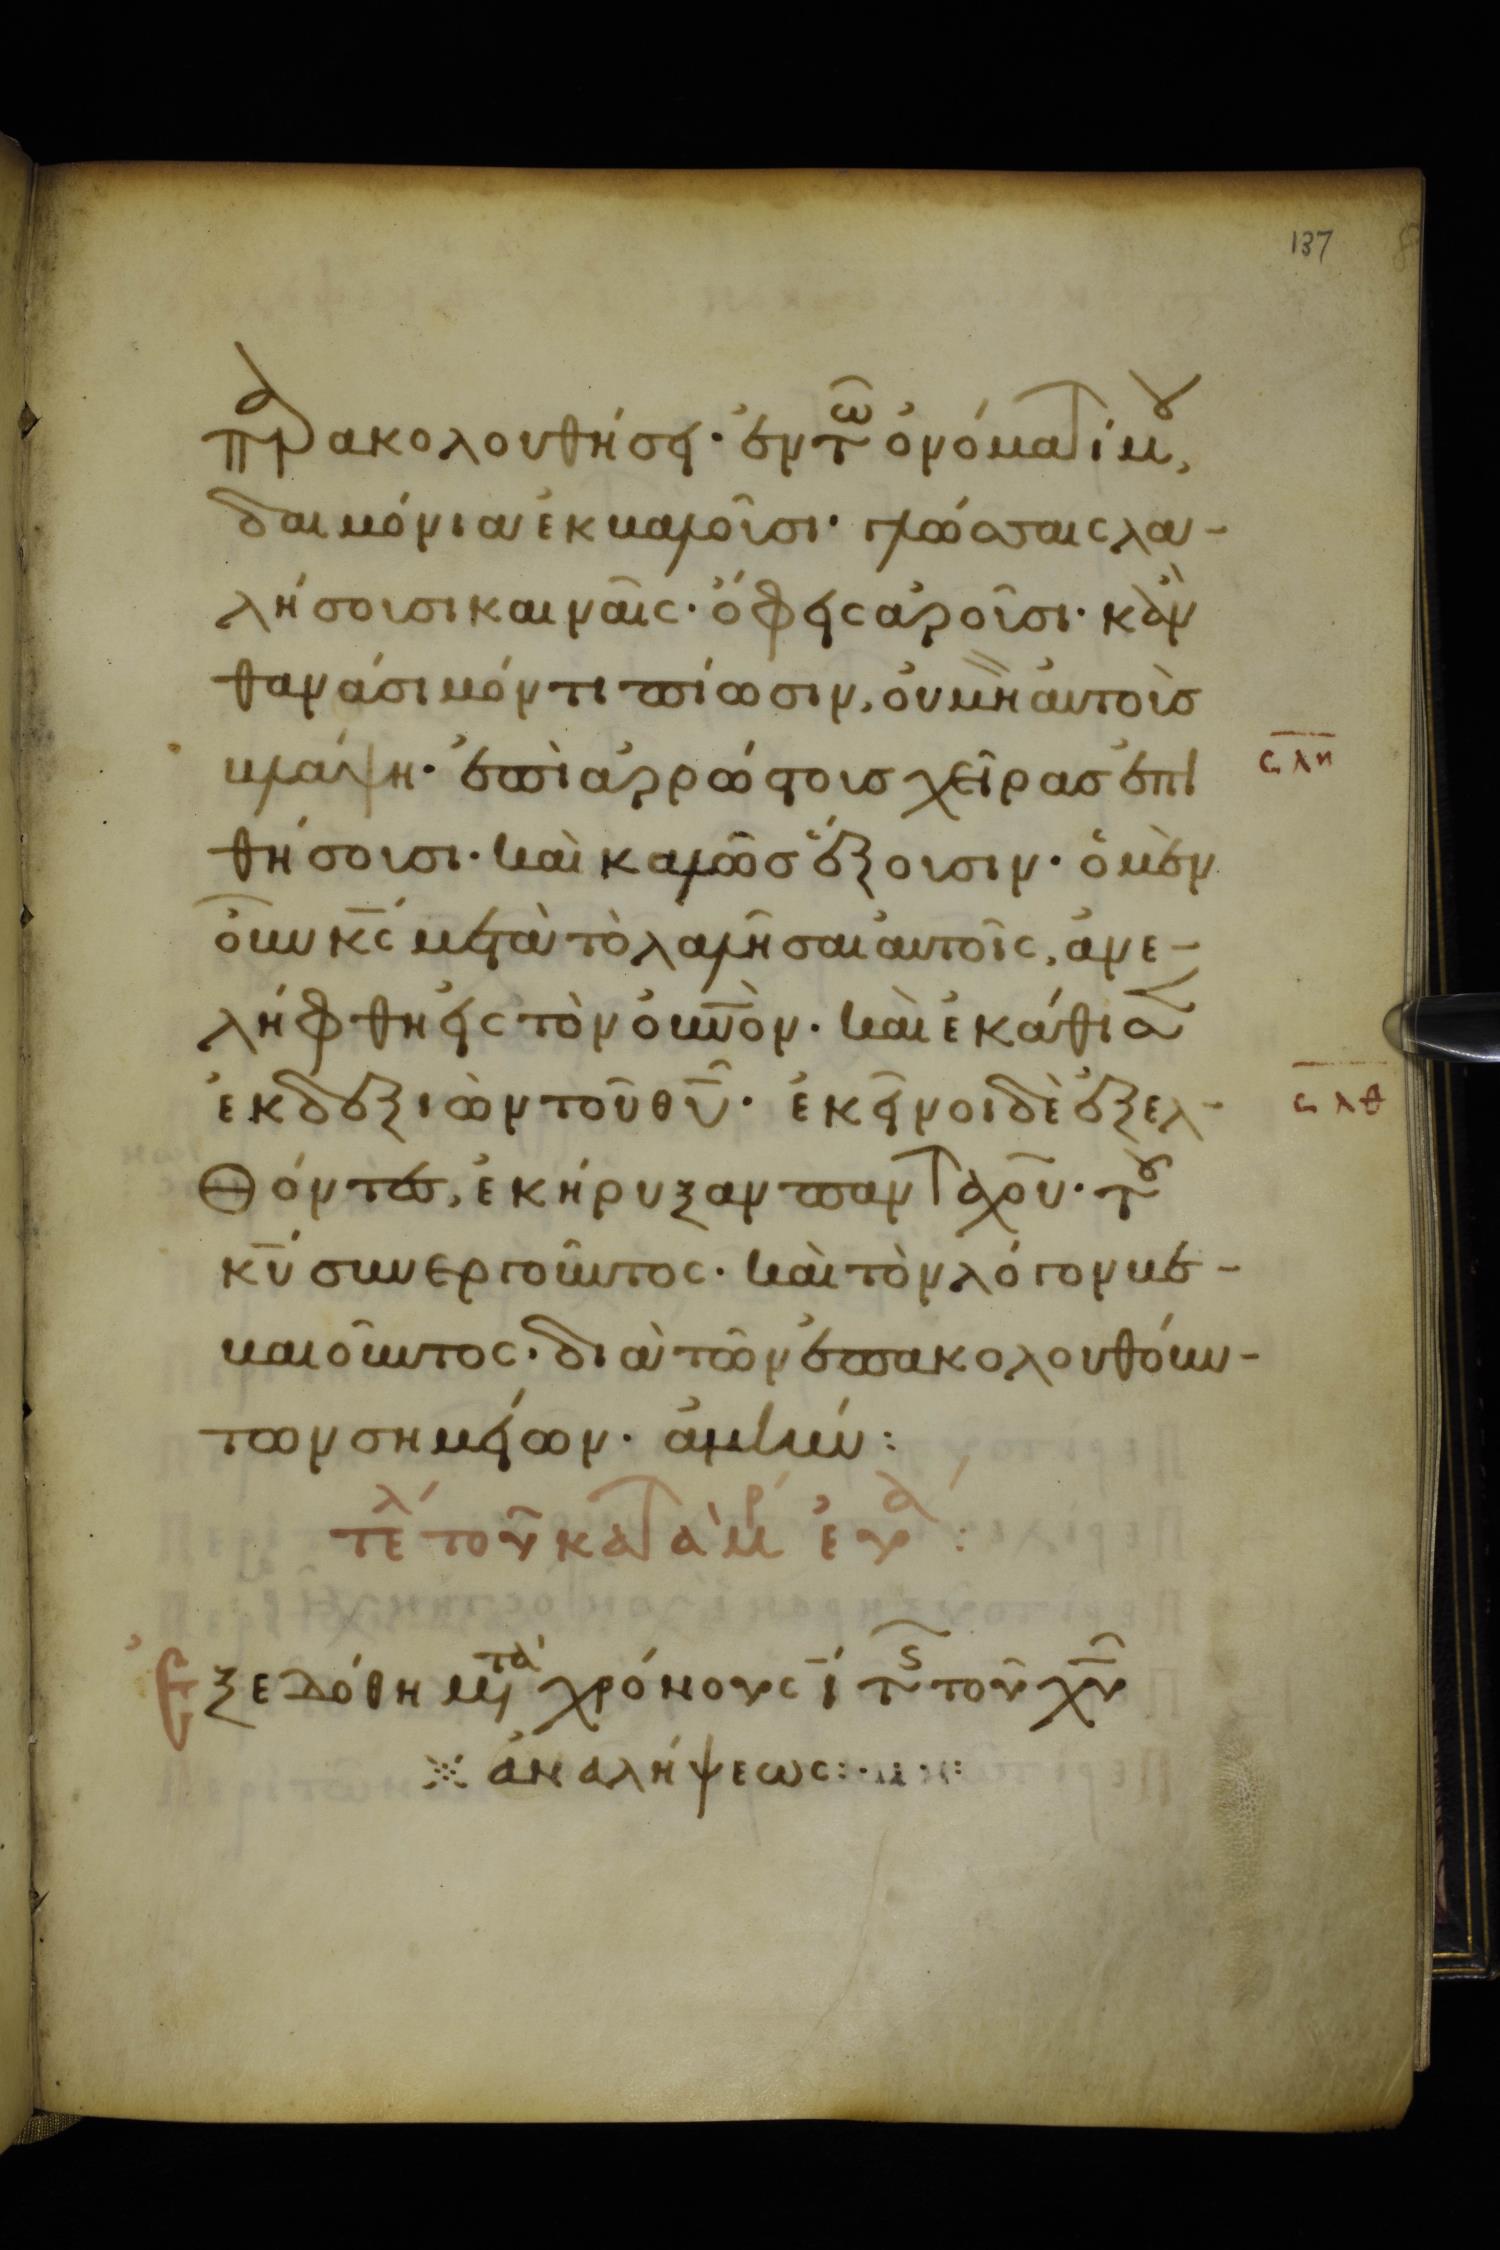 137
πρακολουθήσει· ἐν τῶ ὀνόματί μου,
δαιμόνια ἐκβαλοῦσι· γλώσσαις λα-
λήσουσι καιναῖς· ὄφεις ἀροῦσι· κἂν
θανάσιμόν τι πίωσιν, οὐ μὴ αὐτοὺσ
βλάψη· ἐπὶ ἀρρώστουσ χεῖρασ ἐπι
ϛλη
θήσουσι· καὶ καλῶσ ἕξουσιν· ὁ μὲν
οὖν κ̅ς μετὰ τὸ λαλῆσαι αὐτοῖς, ἀνε-
λήφθη εἰς τὸν οὐ̅νὸν· καὶ ἐκάθισεν
ἐκ δεξιῶν τοῦ θ̅υ· ἐκεῖνοι δὲ ἐξελ-
ϛλθ
θόντες, ἐκήρυξαν πανταχοῦ· τοῦ
κ̅υ συνεργοῦντος· καὶ τὸν λόγον βε-
βαιοῦντος· διὰ τῶν ἐπακολουθούν-
των σημείων· ἀμήν:
τελ τοῦ κατὰ μρ ἐυα:
Ἐξεδόθη μετὰ χρόνους ι̅ τῆς τοῦ χ̅υ
※ ἀναλήψεως: